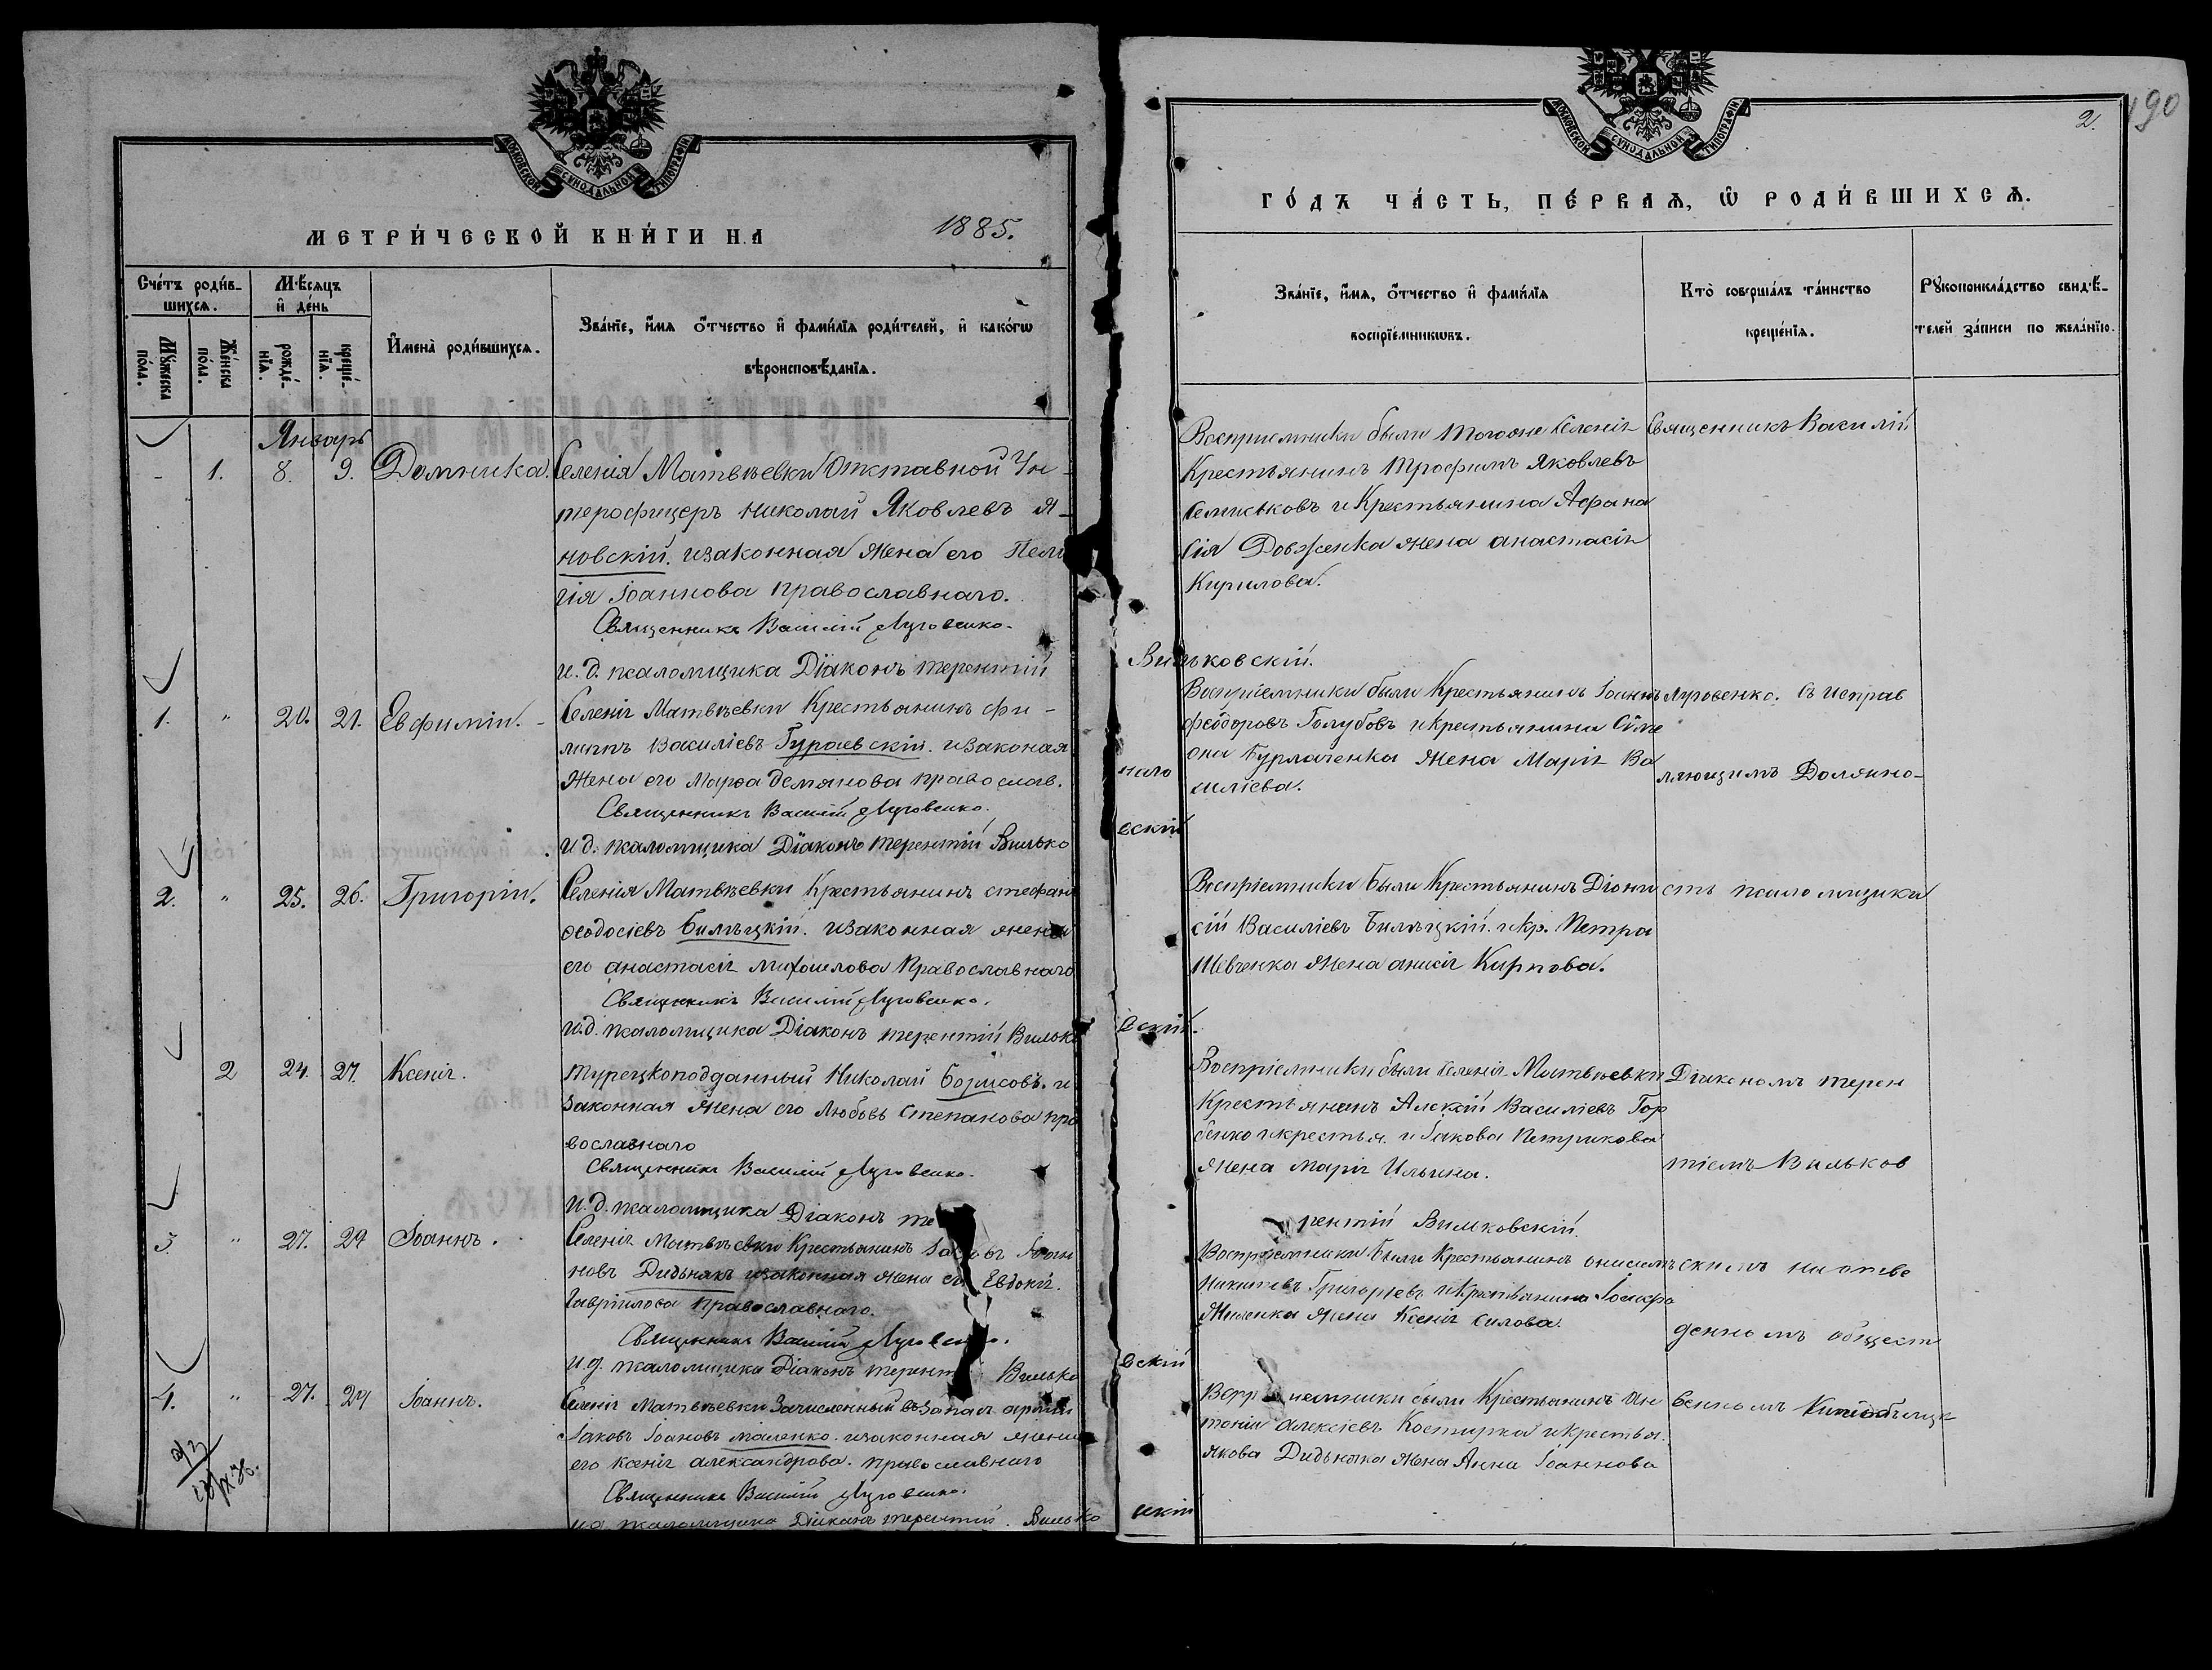 МОСКОВСКОЙ СѴНОДАЛЬНОЙ ТИПОГРАФІИ
МЕТРИ́ЧЕСКОЙ КНИ́ГИ НА
1885.
Сче́тъ роди́в-
шихсѧ.
Мѣ́сѧцъ
и҆ де́нь
И҆мена̀ роди́вшихсѧ.
Зва́нїе, и҆́мѧ ѻ҆́тчество и҆ фамѝлїѧ роди́телей, и҆ како́гѡ
вѣроисповѣ́данїѧ.
Мꙋ́жеска
по́ла.
Же́нска
по́ла.
рожде́-
нїѧ.
креще́-
нїѧ.
Январь
- 1. 8. 9. Домника.
Селенія Матвѣевки Отставной Ун-
терофицеръ Николай Яковлевъ Я-
новскій. изаконная жена его Пела
гія Іоаннова православнаго.
Священникъ Василій Луговенко.
и. д. псаломщика Діаконъ терентій
1. " 20. 21. Евфимій. -
Селенія Матвѣевки Крестьянинъ Фи-
липъ Василіевъ Гураевскій. изаконая
жена его Марѳа Демянова православ.
Священникъ Василій Луговенко.
и д. псаломщика Діаконъ терентій Вилько
2. " 25. 26. Григорій.
Селенія Матвѣевки Крестьянинъ стефанъ
ѳеодосіевъ Билѣцкій. изаконная жена
его анастасія михаилова Православнаго
Священникъ Василій Луговенко.
и.д. псаломщика Діаконъ терентій Вилько
2 24. 27. Ксенія.
Турецкоподданный Николай Борисовъ. и
законная жена его Любовь Степанова пра
вославнаго
Священникъ Василій Луговенко.
и. д. псаломщика Діаконъ те
3. " 27. 29 Іоаннъ.
Селенія Матвѣевки Крестьянинъ Іоан
новъ Дидьнякъ изаконная жена его Евдокія.
Гавріилова Православнаго.
Священникъ Василій Луговенко.
и. д. псаломщика Діаконъ терент Вилько
4. " 27. 29 Іоаннъ.
Селенія Матвѣевки Зачисленный въ запасъ арміи
Іаковъ Іоановъ маленко. изаконная жена
его Ксенія александрова. православнаго
Священникъ Василій Луговенко.
и.д. псаломщика Діаконъ терентій Вилько
МОСКОВСКОЙ СѴНОДАЛЬНОЙ ТИПОГРАФІИ
2.
190
ГО́ДЪ ЧА́СТЬ, ПЕ́РВАѦ, Ѡ҆ РОДИ́ВШИХСѦ.
Зва́нїе, и҆́мѧ, ѻ҆́тчество и҆ фами́лїѧ
воспрїе́мникѡвъ.
Кто̀ соверша́лъ та́инство
креще́нїѧ.
Рꙋкоприкла́дство свидѣ́-
телей за́писи по жела́нїю.
Воспріемники были тогоже селенія
Крестьянинъ Трофимъ Яковлевъ
Семиськовъ и Крестьянина Афана
сія Довженка жена анастасія
Кирилова.
Священникъ Василій
Вильковскій.
Воспріемники были Крестьянинъ Іоаннъ
феодоровъ Голубовъ и крестьянина Симе
она Бурлаченка жена Марія Ва
силіева.
Луговенко. съ исправ
наго
ляющимъ Должно-
вскій
Воспріемники были Крестьянинъ Діони
сій Василіевъ Билѣцкій. и кр. Петра
Шевченка жена анисія Карпова.
сть псаломщика
вскій.
Воспріемники были селенія Матвѣевки
Крестьянинъ Алексій Василіевъ Гор
бенко и крестья. и Іакова Петрикова
жена Марія Ильина.
Діакономъ терен
тіемъ Вильков
рентій Вильковскій.
Воспріемники были Крестьянинъ онисимъ
Никитевъ Григорьевъ и Крестьянина Іосифа
Жиленка жена Ксенія Силова.
скимъ на отве
денномъ общест
вскій
Воспріемники были Крестьянинъ Ан
тоній Алексіевъ Костирка и крестья.
Якова Дидьняка жена Анна Іоаннова
венномъ
вскій